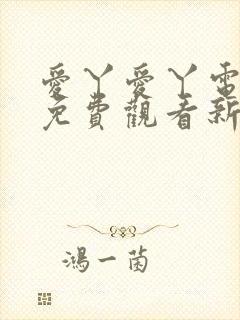 愛丫愛丫電
免費觀看新
鴻一菌